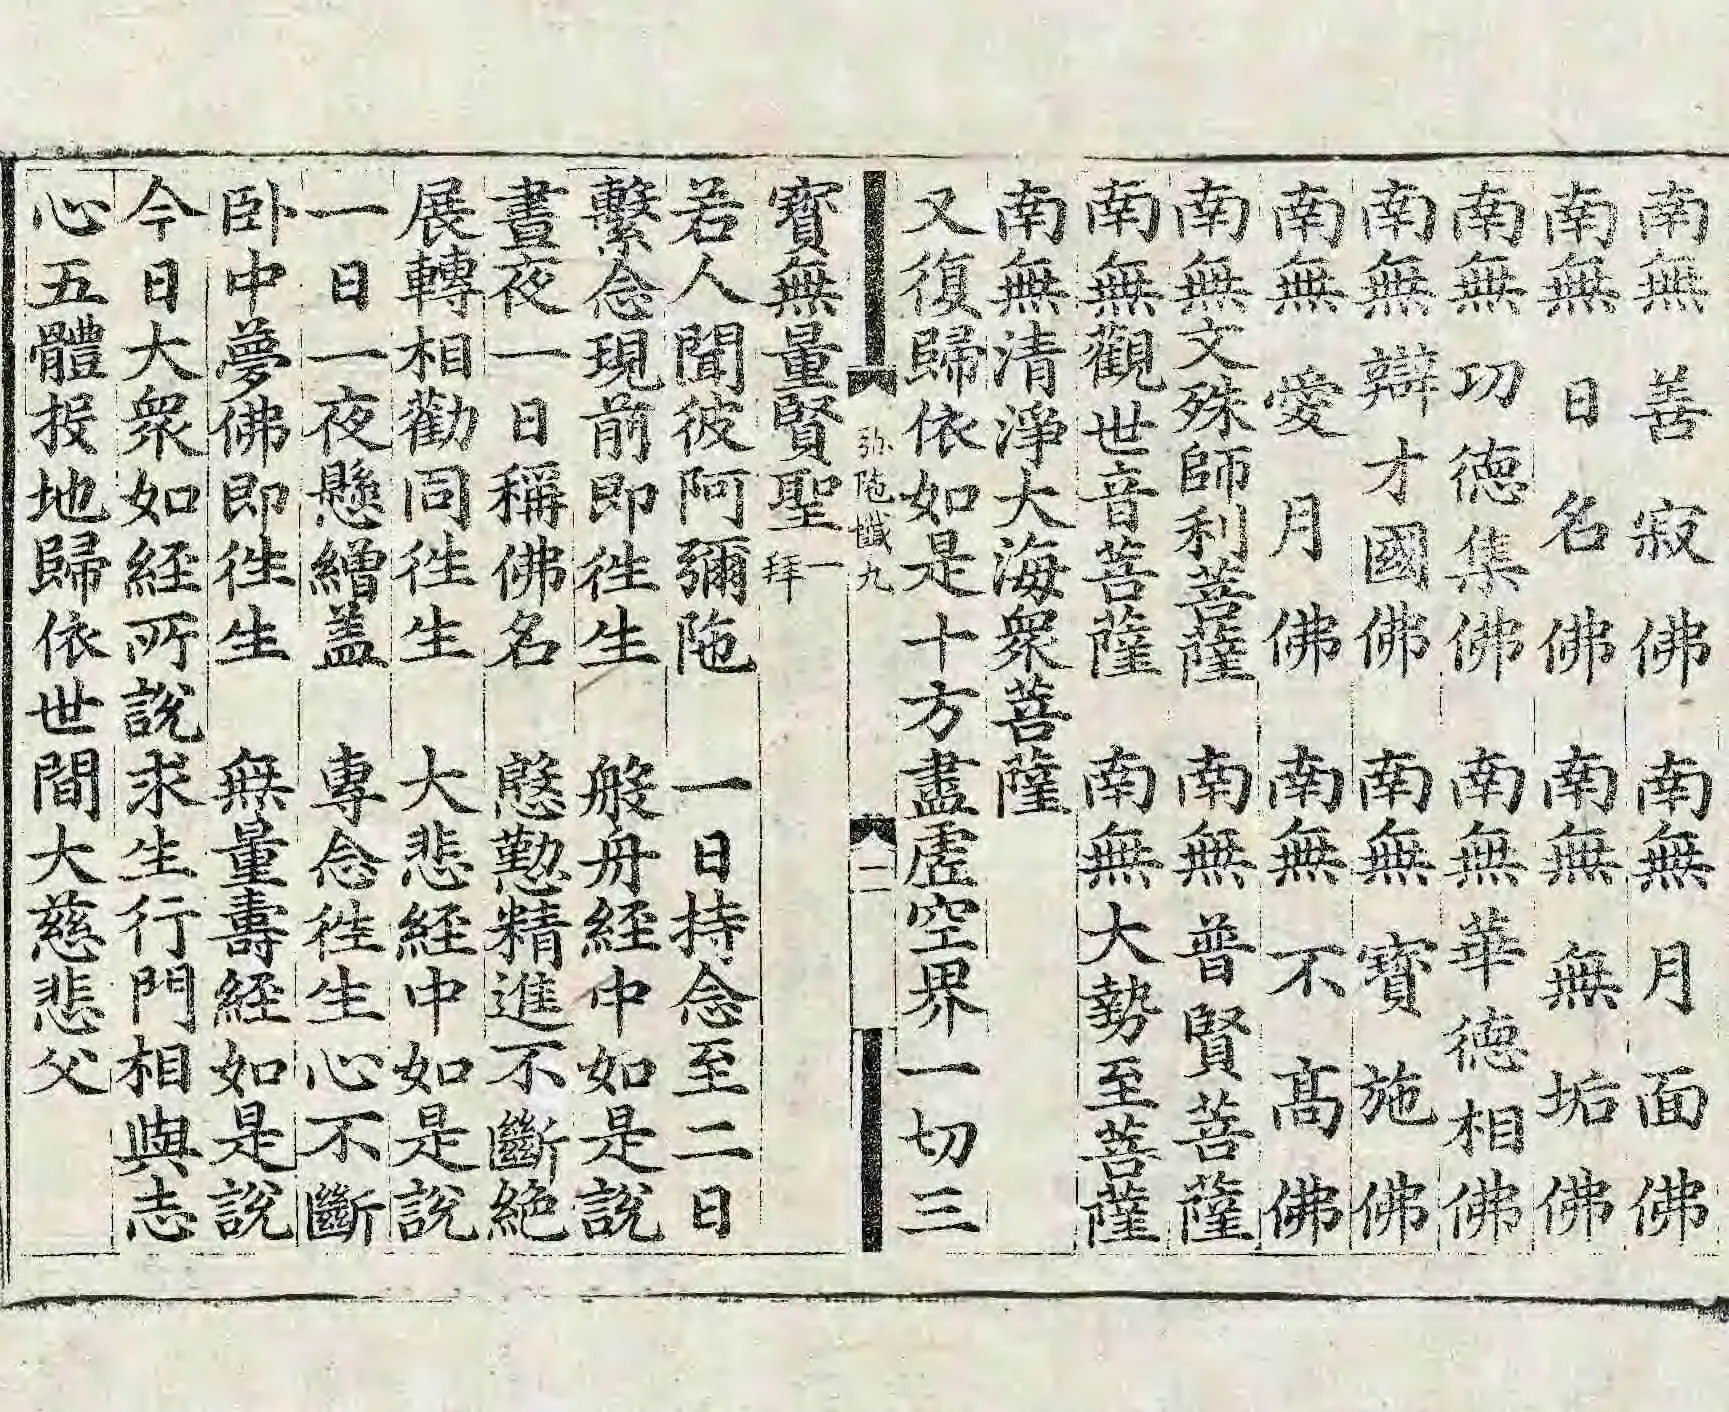 南無善寂佛　南無月面佛
南無日名佛　南無無垢佛
南無功德集佛　南無華德相佛
南無辯才國佛　南無寶施佛
南無愛月佛　南無不髙佛
南無文殊師利菩薩　南無普賢菩薩
南無觀世音菩薩　南無大勢至菩薩
南無清淨大海衆菩薩
又復歸依如是十方盡虛空界一切三
弥陁懺九　二
寶無量賢聖一拜
若人聞彼阿彌陁　一日持念至二日
繫念現前即徃生　般舟經中如是說
晝夜一日稱佛名　慇懃精進不斷絕
展轉相勸同徃生　大悲經中如是說
一日一夜懸繒盖　專念徃生心不斷
卧中夢佛即徃生　無量壽經如是說
今日大衆如經所說求生行門相與志
心五體投地歸依世間大慈悲父